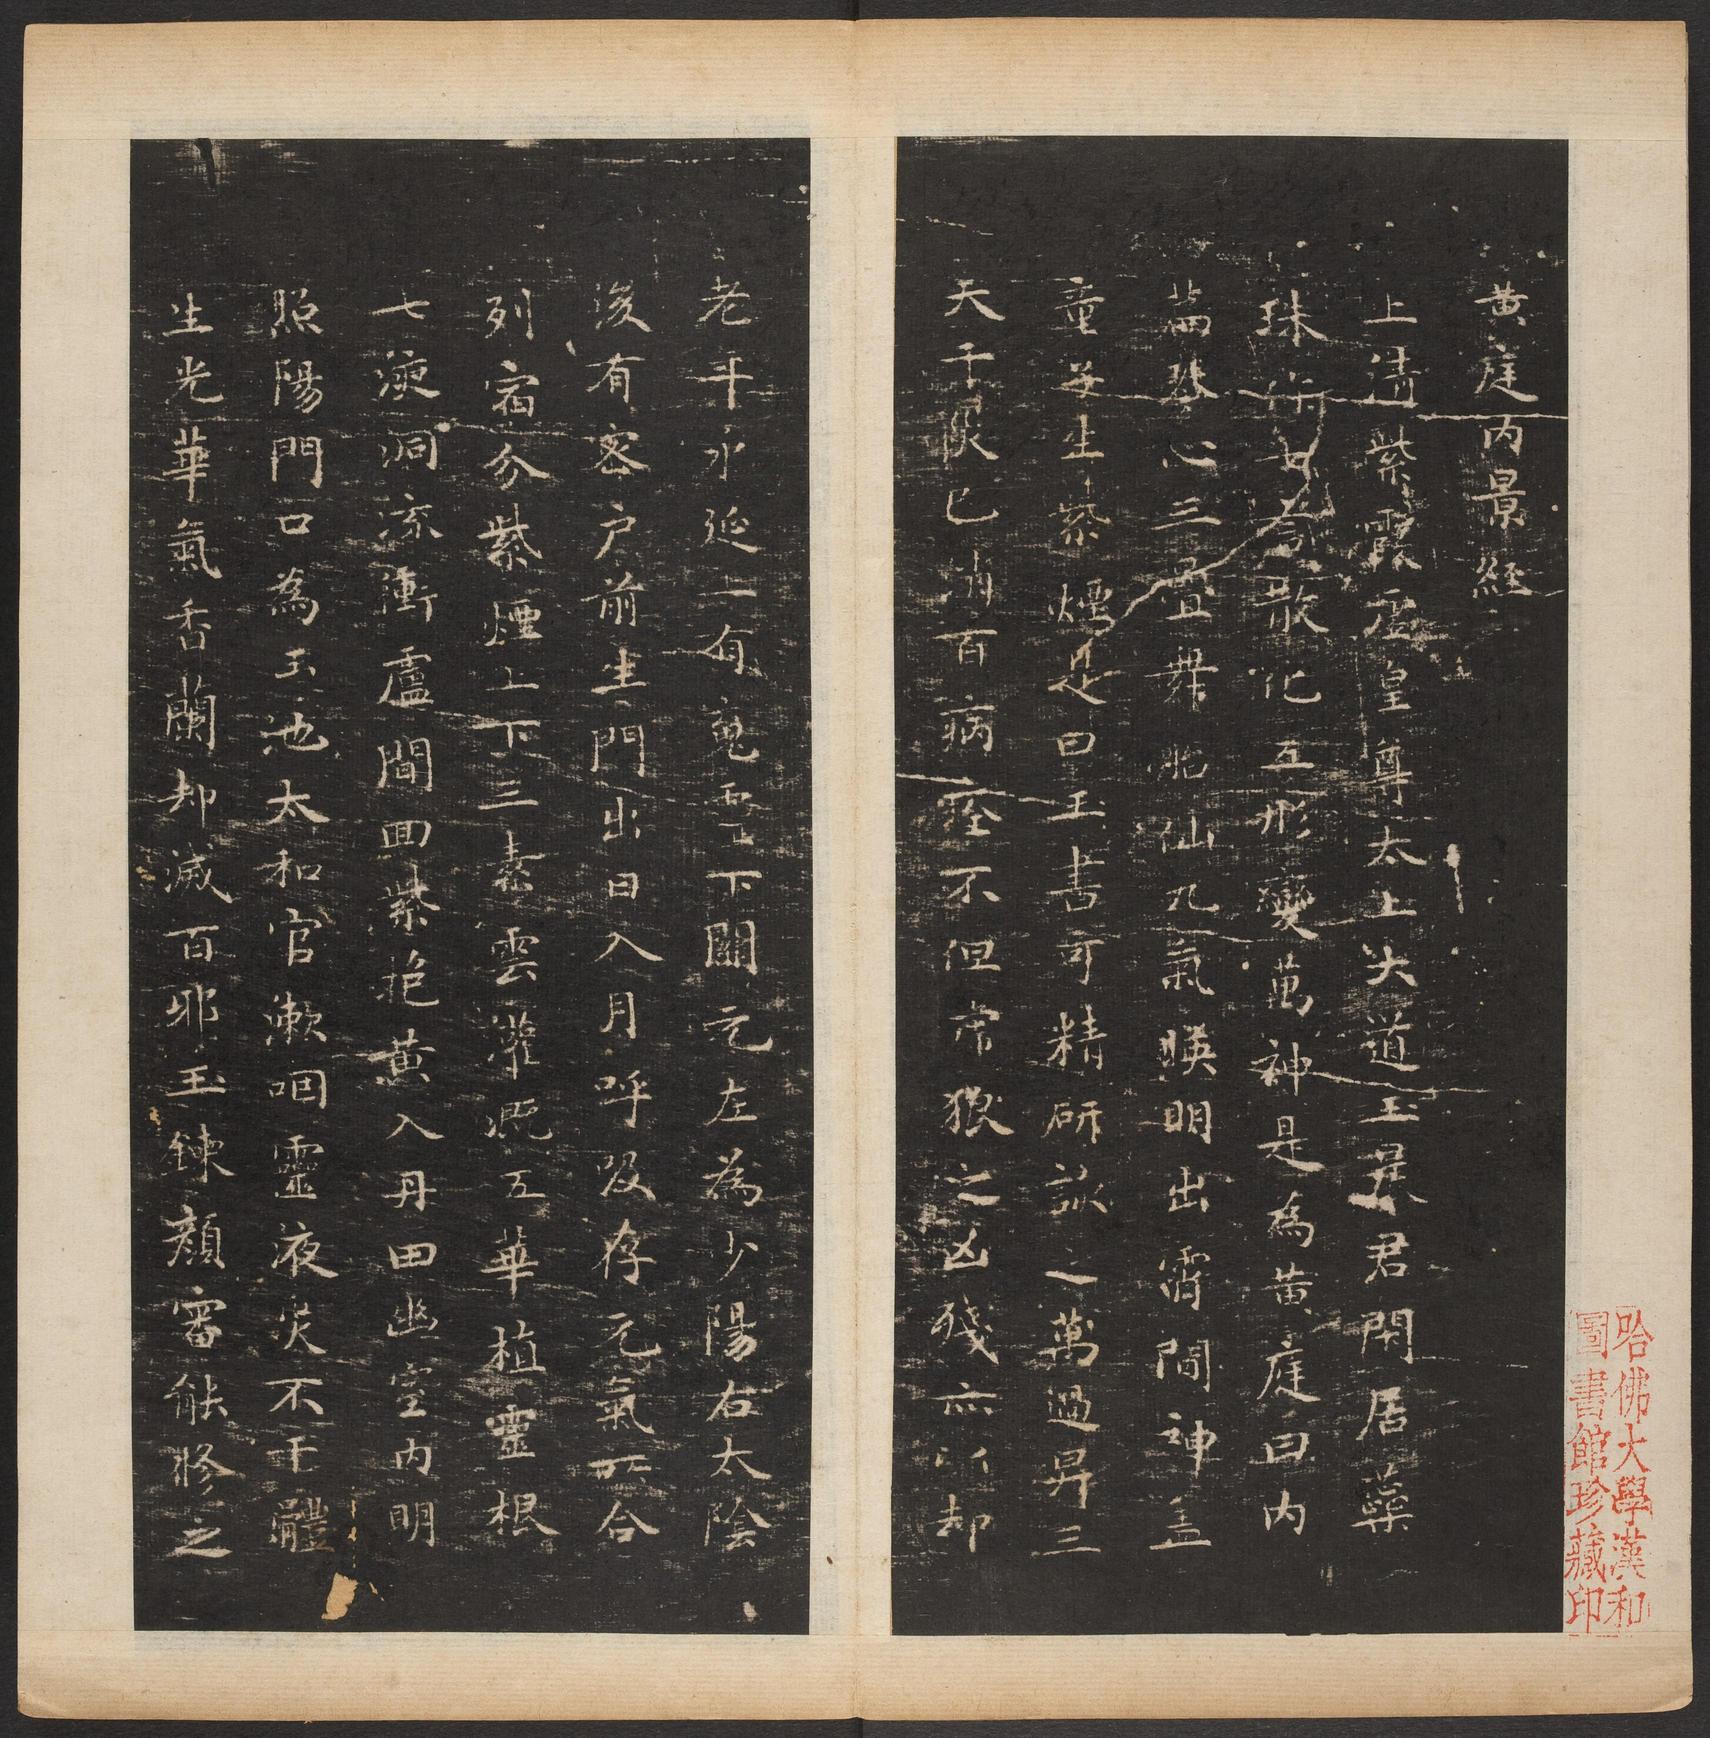 黄庭内景經
上清紫霞虛皇尊太上大道玉晨君閑居蘂
珠作七言散化五形變萬神是為黄庭曰内
篇琴心三疊舞胎仙九氣暎明出霄間神盖
童子生紫煙是曰玉書可精研詠之萬過昇三
天千災已消百病痊不但常狼之凶殘亦以却
老年永延上有魂靈下關元左為少陽右太陰
後有密户前生門出日入月呼吸存元氣所合
列宿分紫煙上下三素雲灌溉五華植靈根
七液洞流衝廬間回紫抱黄入丹田幽室内明
照陽門口為玉池太和官漱咽靈液災不干體
生光華氣香蘭却滅百邪玉鍊顔審能修之
哈佛大學漢和
圖書館珍藏印